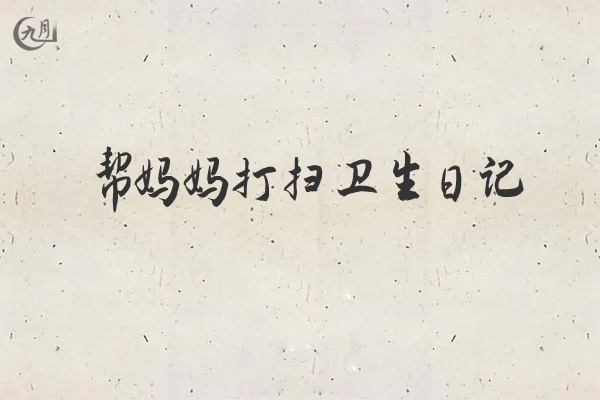 九月
帮妈妈打扫卫生日记